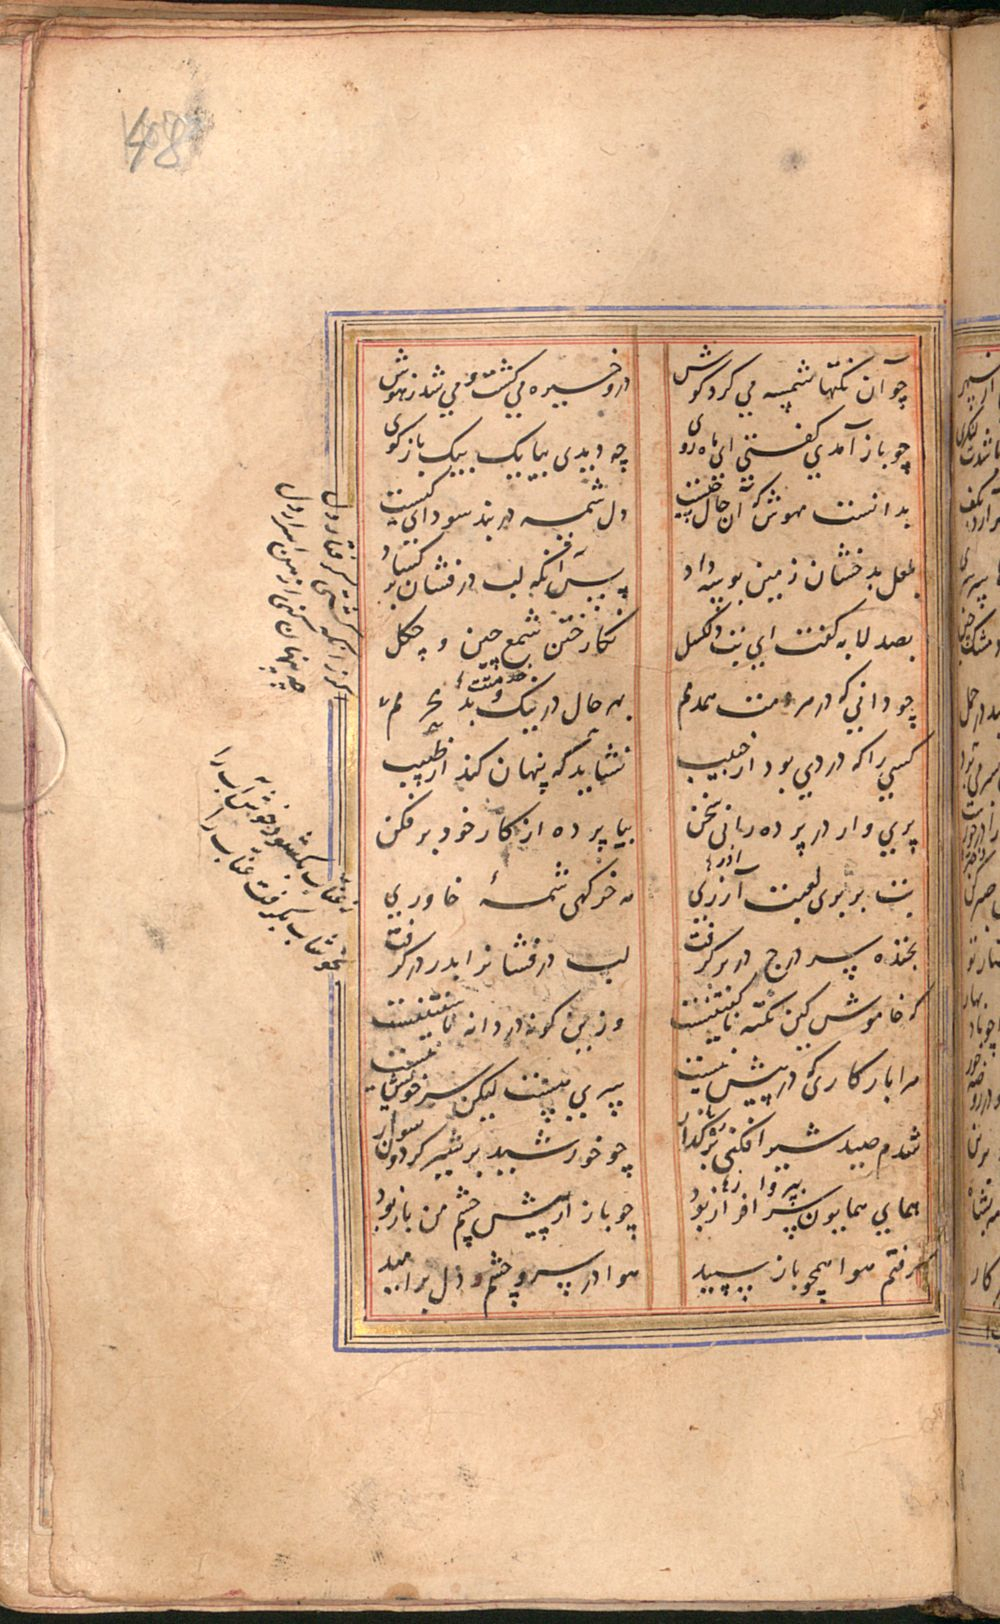 چو آن نکتها شمسه می کرد گوش
درو خیره می گشت و می شد ز هوش
چو باز آمدی گفتی ای ماه روی
چه دیدی بیا یک بیک باز گوی
بدانست مهوش که آن حال چیست
دل شمسه در بند سودای کیست
بلعل بدخشان زمین بوسه داد
پس آنگه لب درفشان بر گشاد
بصد لابه گفت ای بت دلگسل
نگار ختن شمع چین و چگل
چو دانی که در خدمتت همدمم
بهر حال در نیک و بد محرمم
کسی را که دردی بود از حبیب
نشاید که پنهان کند از طبیب
پری وار در پرده رانی سخن
بیا پرده از کار خود بر فکن
بت بربری لعبت آزری
مه خرگهی شمسهٔ خاوری
بخنده سر درج در بر گرفت
لب درفشانرا بدر در گرفت
که خاموش کین نکته ناگفتنیست
وزین گونه دردانه ناسفتنیست
مرا بار کاری که در پیش نیست
پری هست لیکن سر خویش نیست
شدم صید شیر افکنی نرگذار
چو خورشید بر شیر گردون سوار
همای همایون سرافراز بود
چو باز از پیش چشم من باز بود
گرفتم هوا همچو باز سپید
هوا در سر و چشم و دل بر امید
گر زانکه گشتی گرفتار دل
چه پنهان کنی از من اسرار دل
ز عناب بگشود خوشاب را
بخوشاب بگرفت عناب را
408